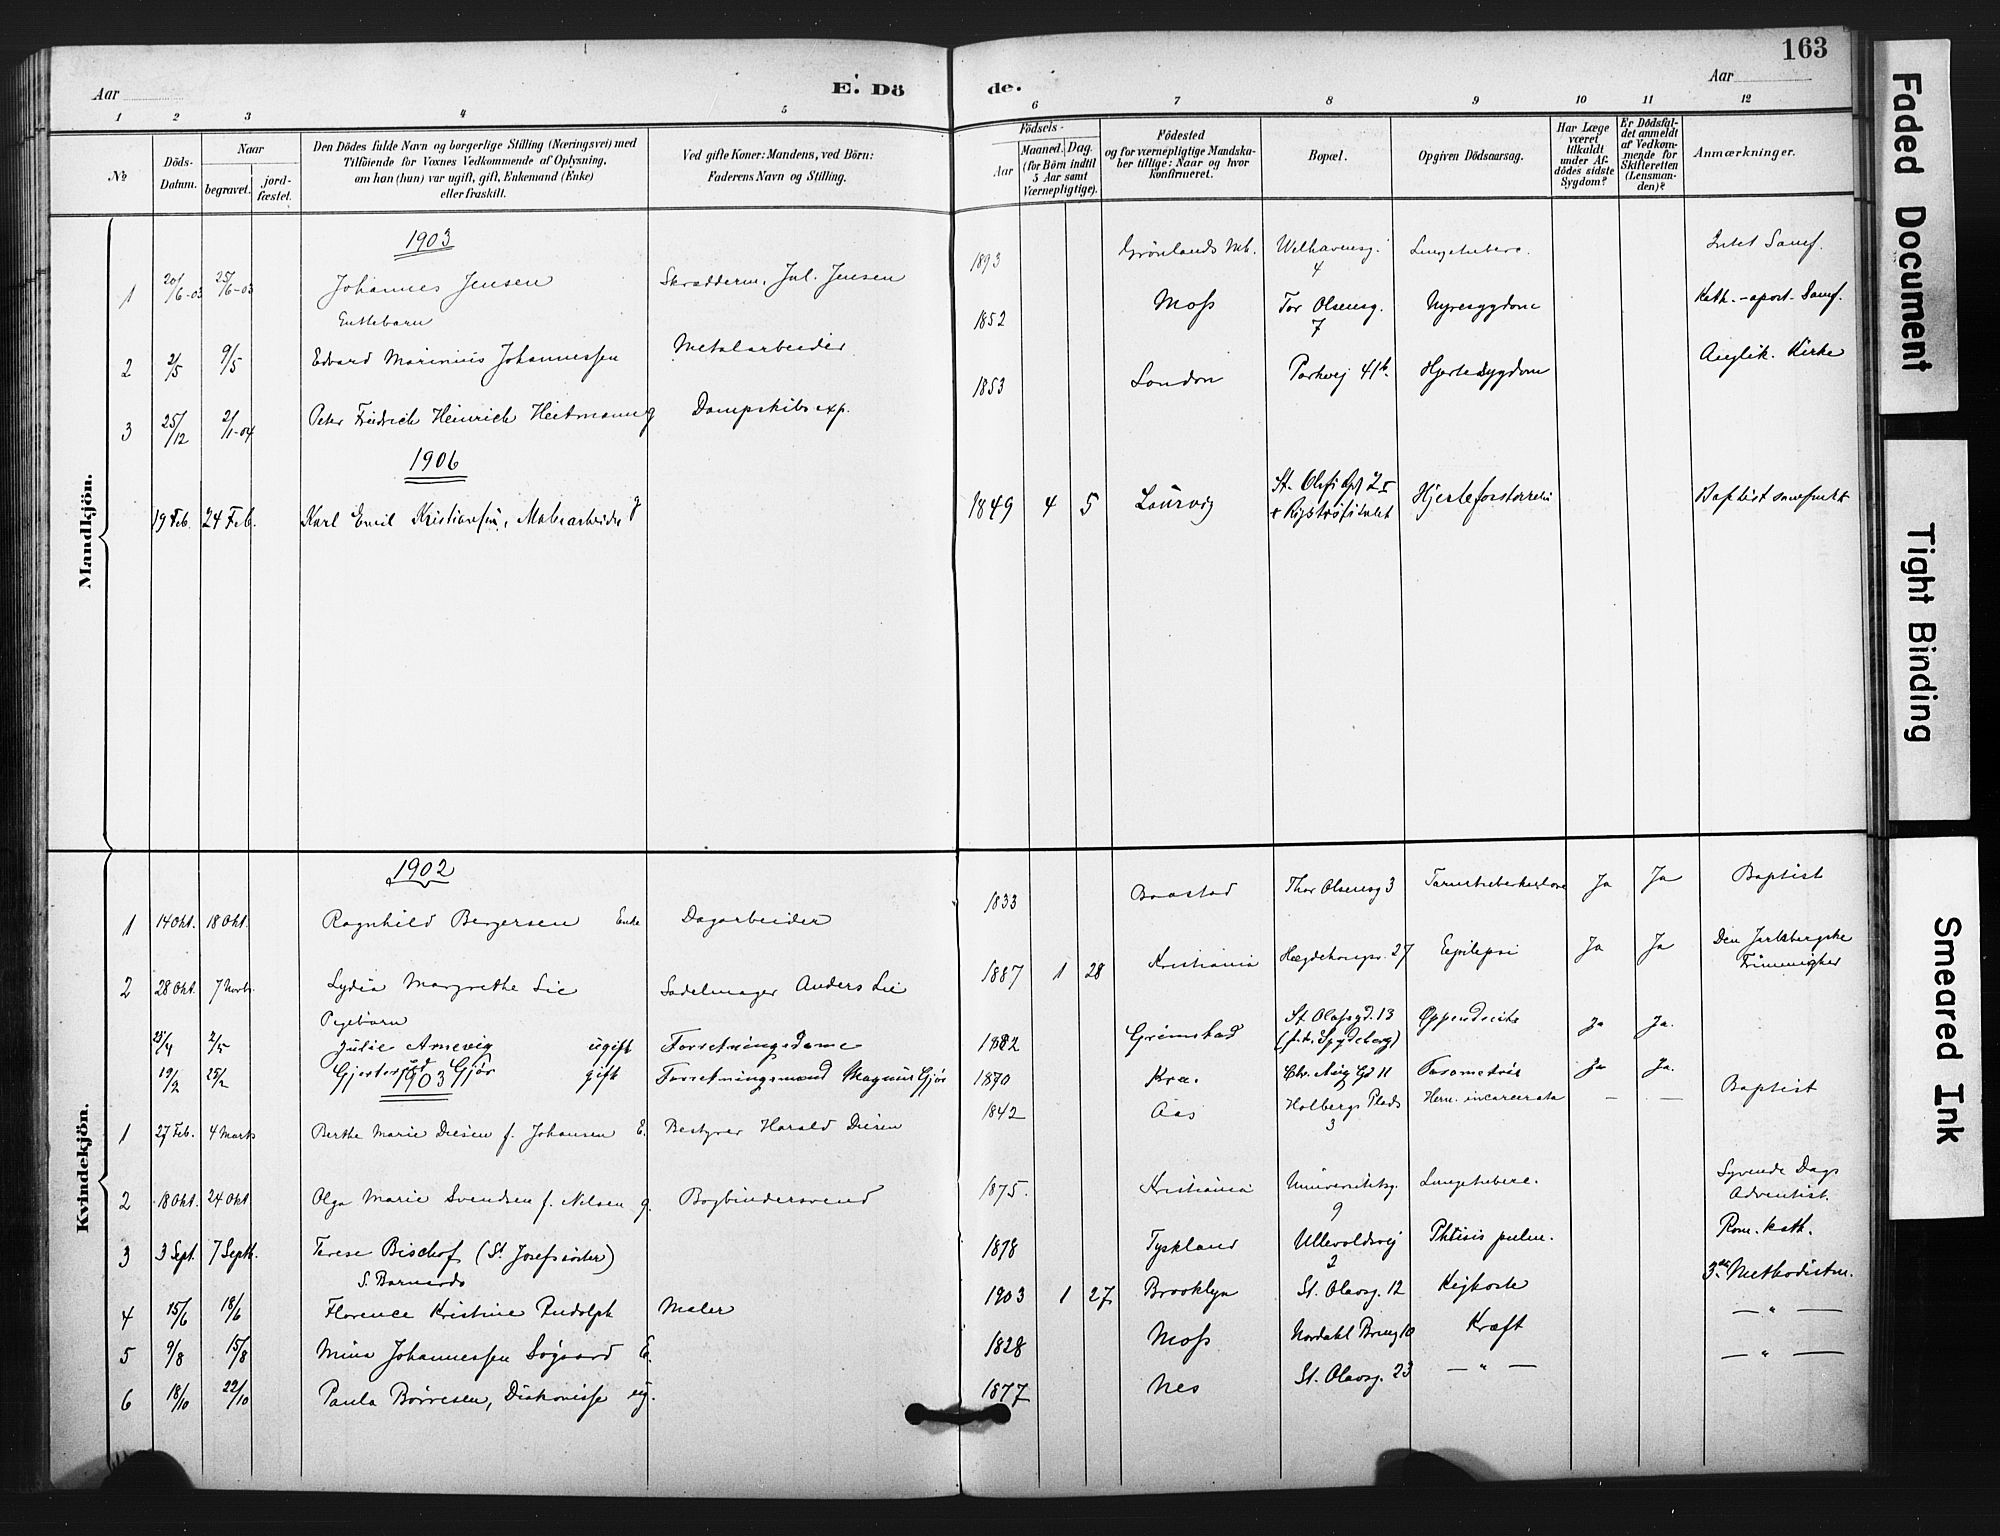 163
Aar
E. Dö
de.
Aar
1 2 3 4 5 6 7 8 9 10 11 12
№
Döds-Datum.
Naar
begravet.
jordfæstet.
Den Dödes fulde Navn og borgerlige Stilling (Næringsvei) med
Tilföiende for Voxnes Vedkommende af Oplysning,
om han (hun) var ugift, gift, Enkemand (Enke)
eller fraskilt.
Ved gifte Koner: Mandens, ved Börn:
Faderens Navn og Stilling.
Födsels-
Aar
Maaned.
Dag.
(for Börn indtil
5 Aar samt
Værnepligtige).
Födested
og for værnepligtige Mandska-
ber tillige: Naar og hvor
konfirmeret.
Bopæl.
Opgiven Dödsaarsag.
Har Læge
været
tilkaldt
under Af-
dödes sidste
Sygdom?
Er Dödsfal-
det anmeldt
af Vedkom-
mende for
Skifteretten
(Lensman-
den)?
Anmærkninger.
Mandkjön.
1903
1 20/6-03 25/6-03 Johannes Jensen Skrædderm. Jul. Jensen 1893 Grönlands Welhavensg. 4 Intet Samf.
2 2/5 9/5 Edvard Marinius Johannessen Metalarbeider 1852 Moss Tor Olsensg. 7 Nyresygdom Kath.-apost. Samf.
3 25/12 2/1-04 Peter Friedrich Heinrich Heitmann g Dampskibsexp. 1853 London Parkvej 41b Hjertesygdom Anglik. Kirke
1906
19 Feb. 24 Feb. Karl Emil Kristiansen, g 1849 4 5 Laurvig Baptist
Kvindekjön.
1902
1 14 Okt. 18 Okt. Ragnhild Bergersen Enke Dagarbeider 1833 Baastad Thor Olsensg 3 Ja Ja Baptist
2 28 Okt. 7 Novb. Lydia Margrethe Lie Sadelmager Anders Lie 1887 1 28 Kristiania 27 Epilepsi Ja Ja Den Jarlsbergske Frimenighed
Pigebarn
25/4 2/5 Julie Arnevig ugift Forretningsdame 1882 Grimstad St. Olafsgd. 13 Ja Ja.
19/2 25/2 Gjør gift Forretningsmand Magnus Gjør 1870 Kra. Chr. Aug Gd 11 Ja Ja.
1903
1 27 Feb. 4 Marts Berthe Marie Diesen f. Johansen E. Bestyrer Harald Diesen 1842 Aas Holbergs Plads 3 Hern. incarcerata — — Baptist
2 18 Okt. 24 Okt. Olga Marie Svendsen f. Nilsen g. Bogbindersvend 1875. Kristiania Universitetsg. 9 Syvende Dags Adventist.
3 3 Sept. 7 Septb. Terese Bischof (St. Josefssöster) 1878 Tyskland Ullevoldsvej 2 Phtisis pulm. Rom. kath.
4 15/6 18/6 Florence Kristine Rudolph Maler 1903 1 27 Brooklyn St. Olavsg. 12 3die Methodistm.
5 9/8 15/8 Mina Johannessen Søgaard E. 1828 Moss Nordahl Brung 10 Kræft — " —
6 18/10 22/10 Paula Børresen, Diakonisse ug. 1877 Nes St. Olavsg. 23 — " — — " —
Faded Document
Tight Binding
Smeared Ink